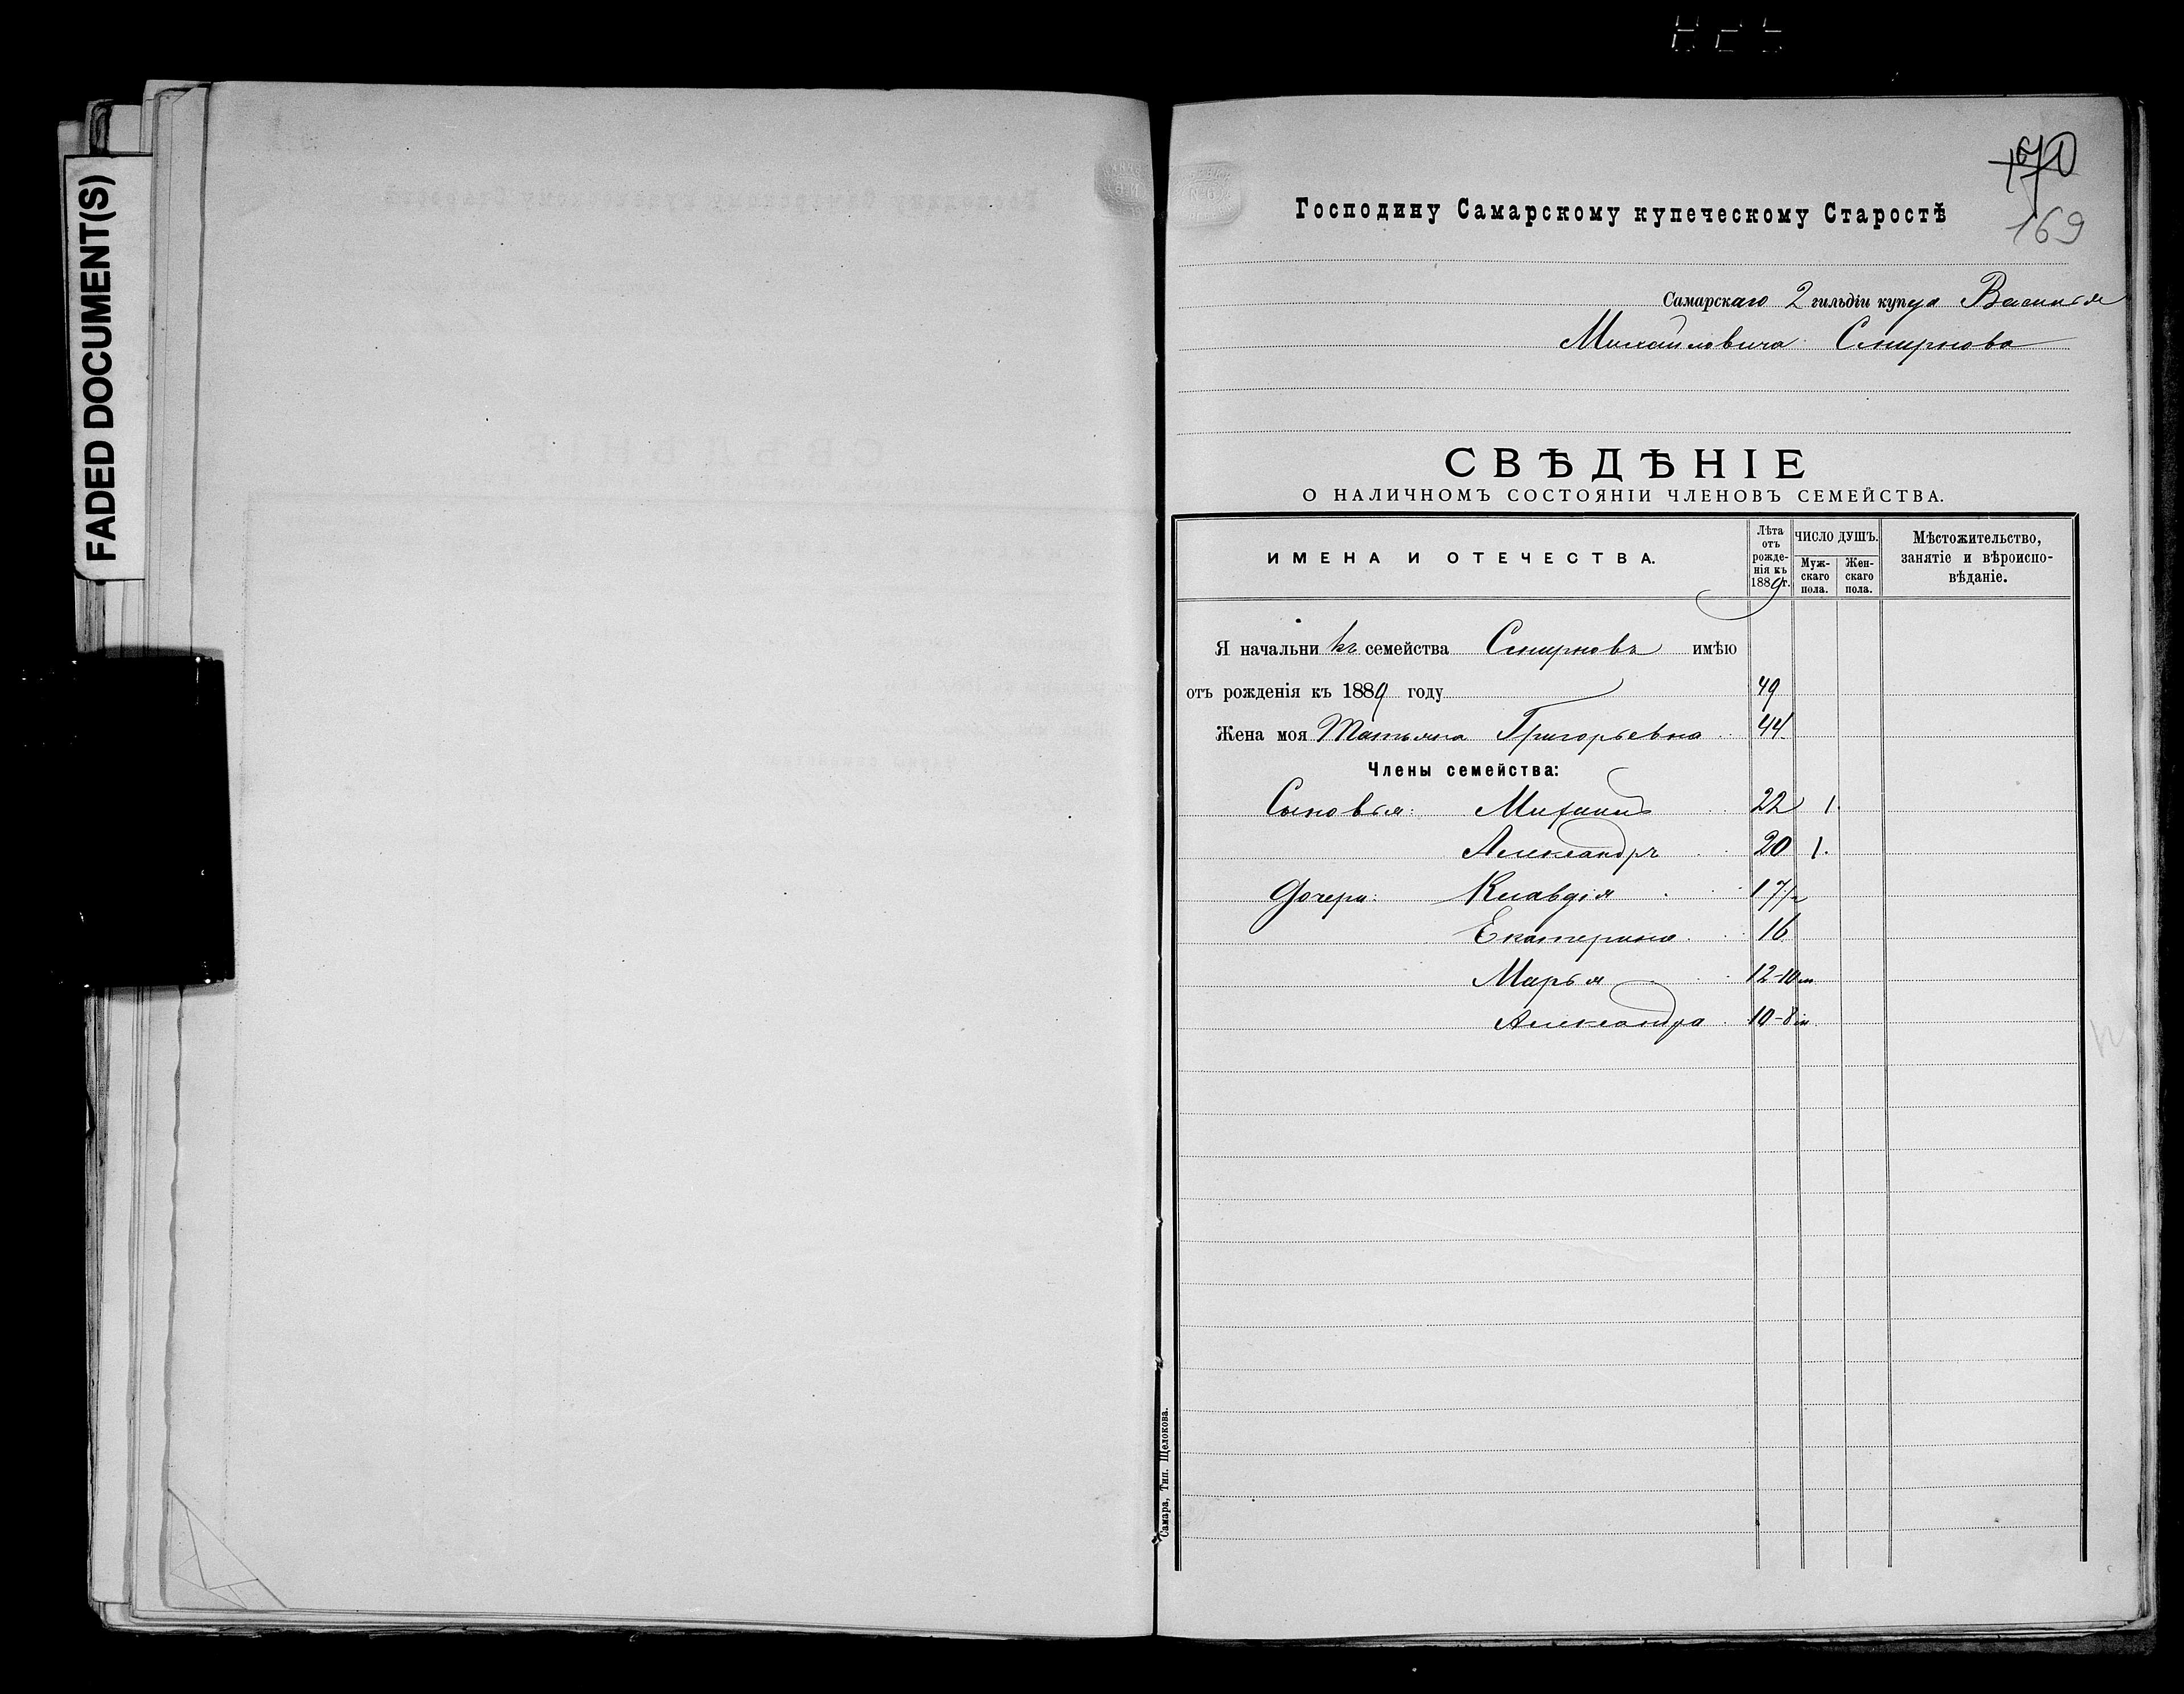 FADED DOCUMENT(S)
170
169
Господину Самарскому купеческому Старостѣ
Самарскаго 2 гильдіи купца Василья
Михайловича Смирнова
СВѢДѢНІЕ
О НАЛИЧНОМЪ СОСТОЯНІИ ЧЛЕНОВЪ СЕМЕЙСТВА.
ИМЕНА И ОТЕЧЕСТВА.
Лѣта отъ рожде-нія къ 1889 г.
ЧИСЛО ДУШЪ.
Муж-скаго пола.
Жен-скаго пола.
Мѣстожительство, занятіе и вѣроиспо-вѣданіе.
Я начальникъ семейства Смирновъ имѣю
отъ рожденія къ 1889 году 49
Жена моя Татьяна Григорьевна 44
Члены семейства:
Сыновья: Михаилъ 22 1.
Александръ 20 1.
Дочери: Клавдія 17 1/2
Екатерина 16
Марья 12-10 м
Александра 10-8 м
Самара, Тип. Щелокова.